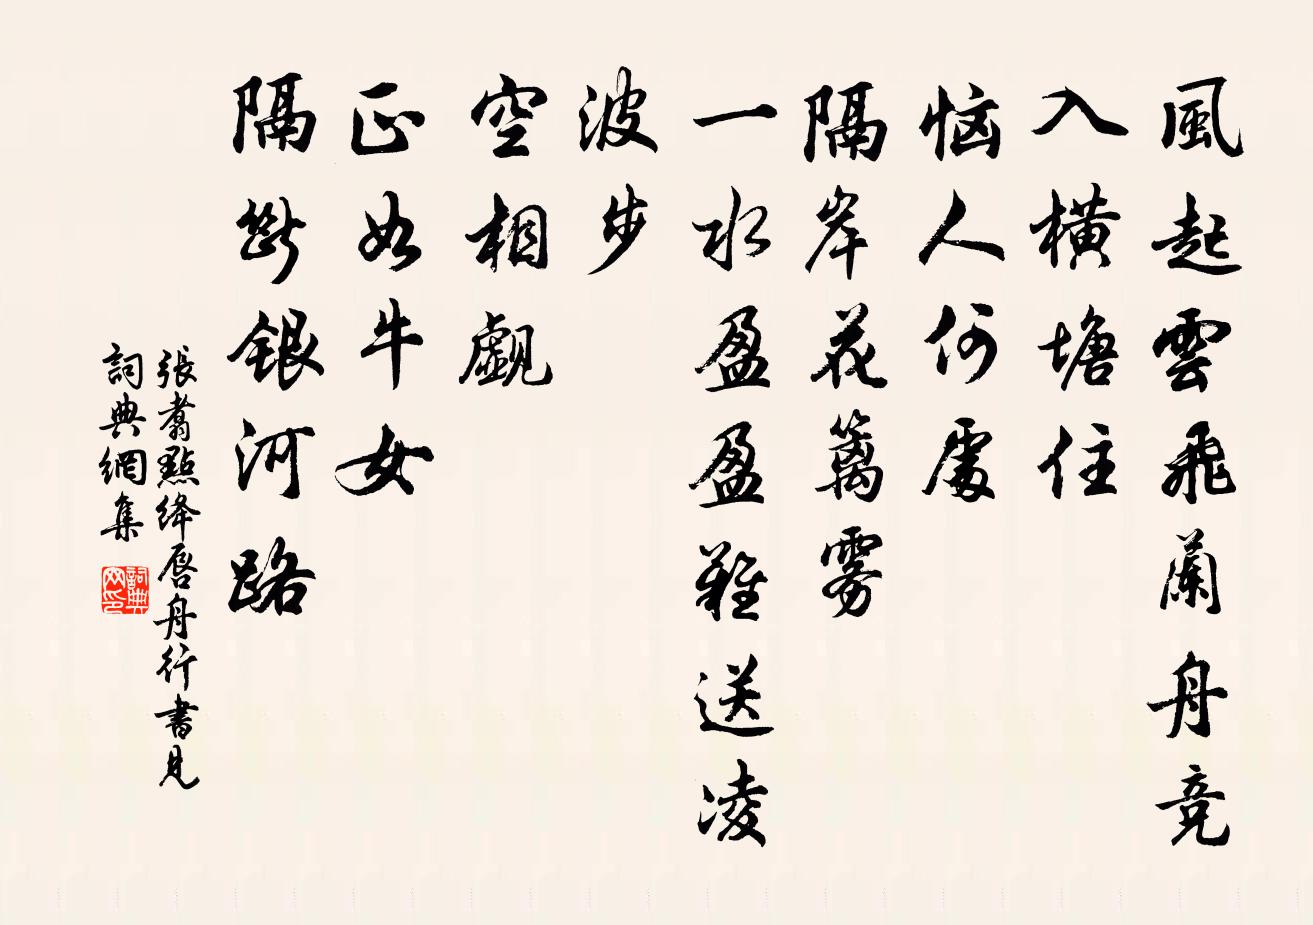 風起雲飛蘭舟竞
入横塘住
恼人何處
隔岸花籬雾
一水盈盈難送凌
波步
空相覷
正如牛女
隔斷銀河路
張翥點絳唇舟行書見
詞典網集
詞典网印